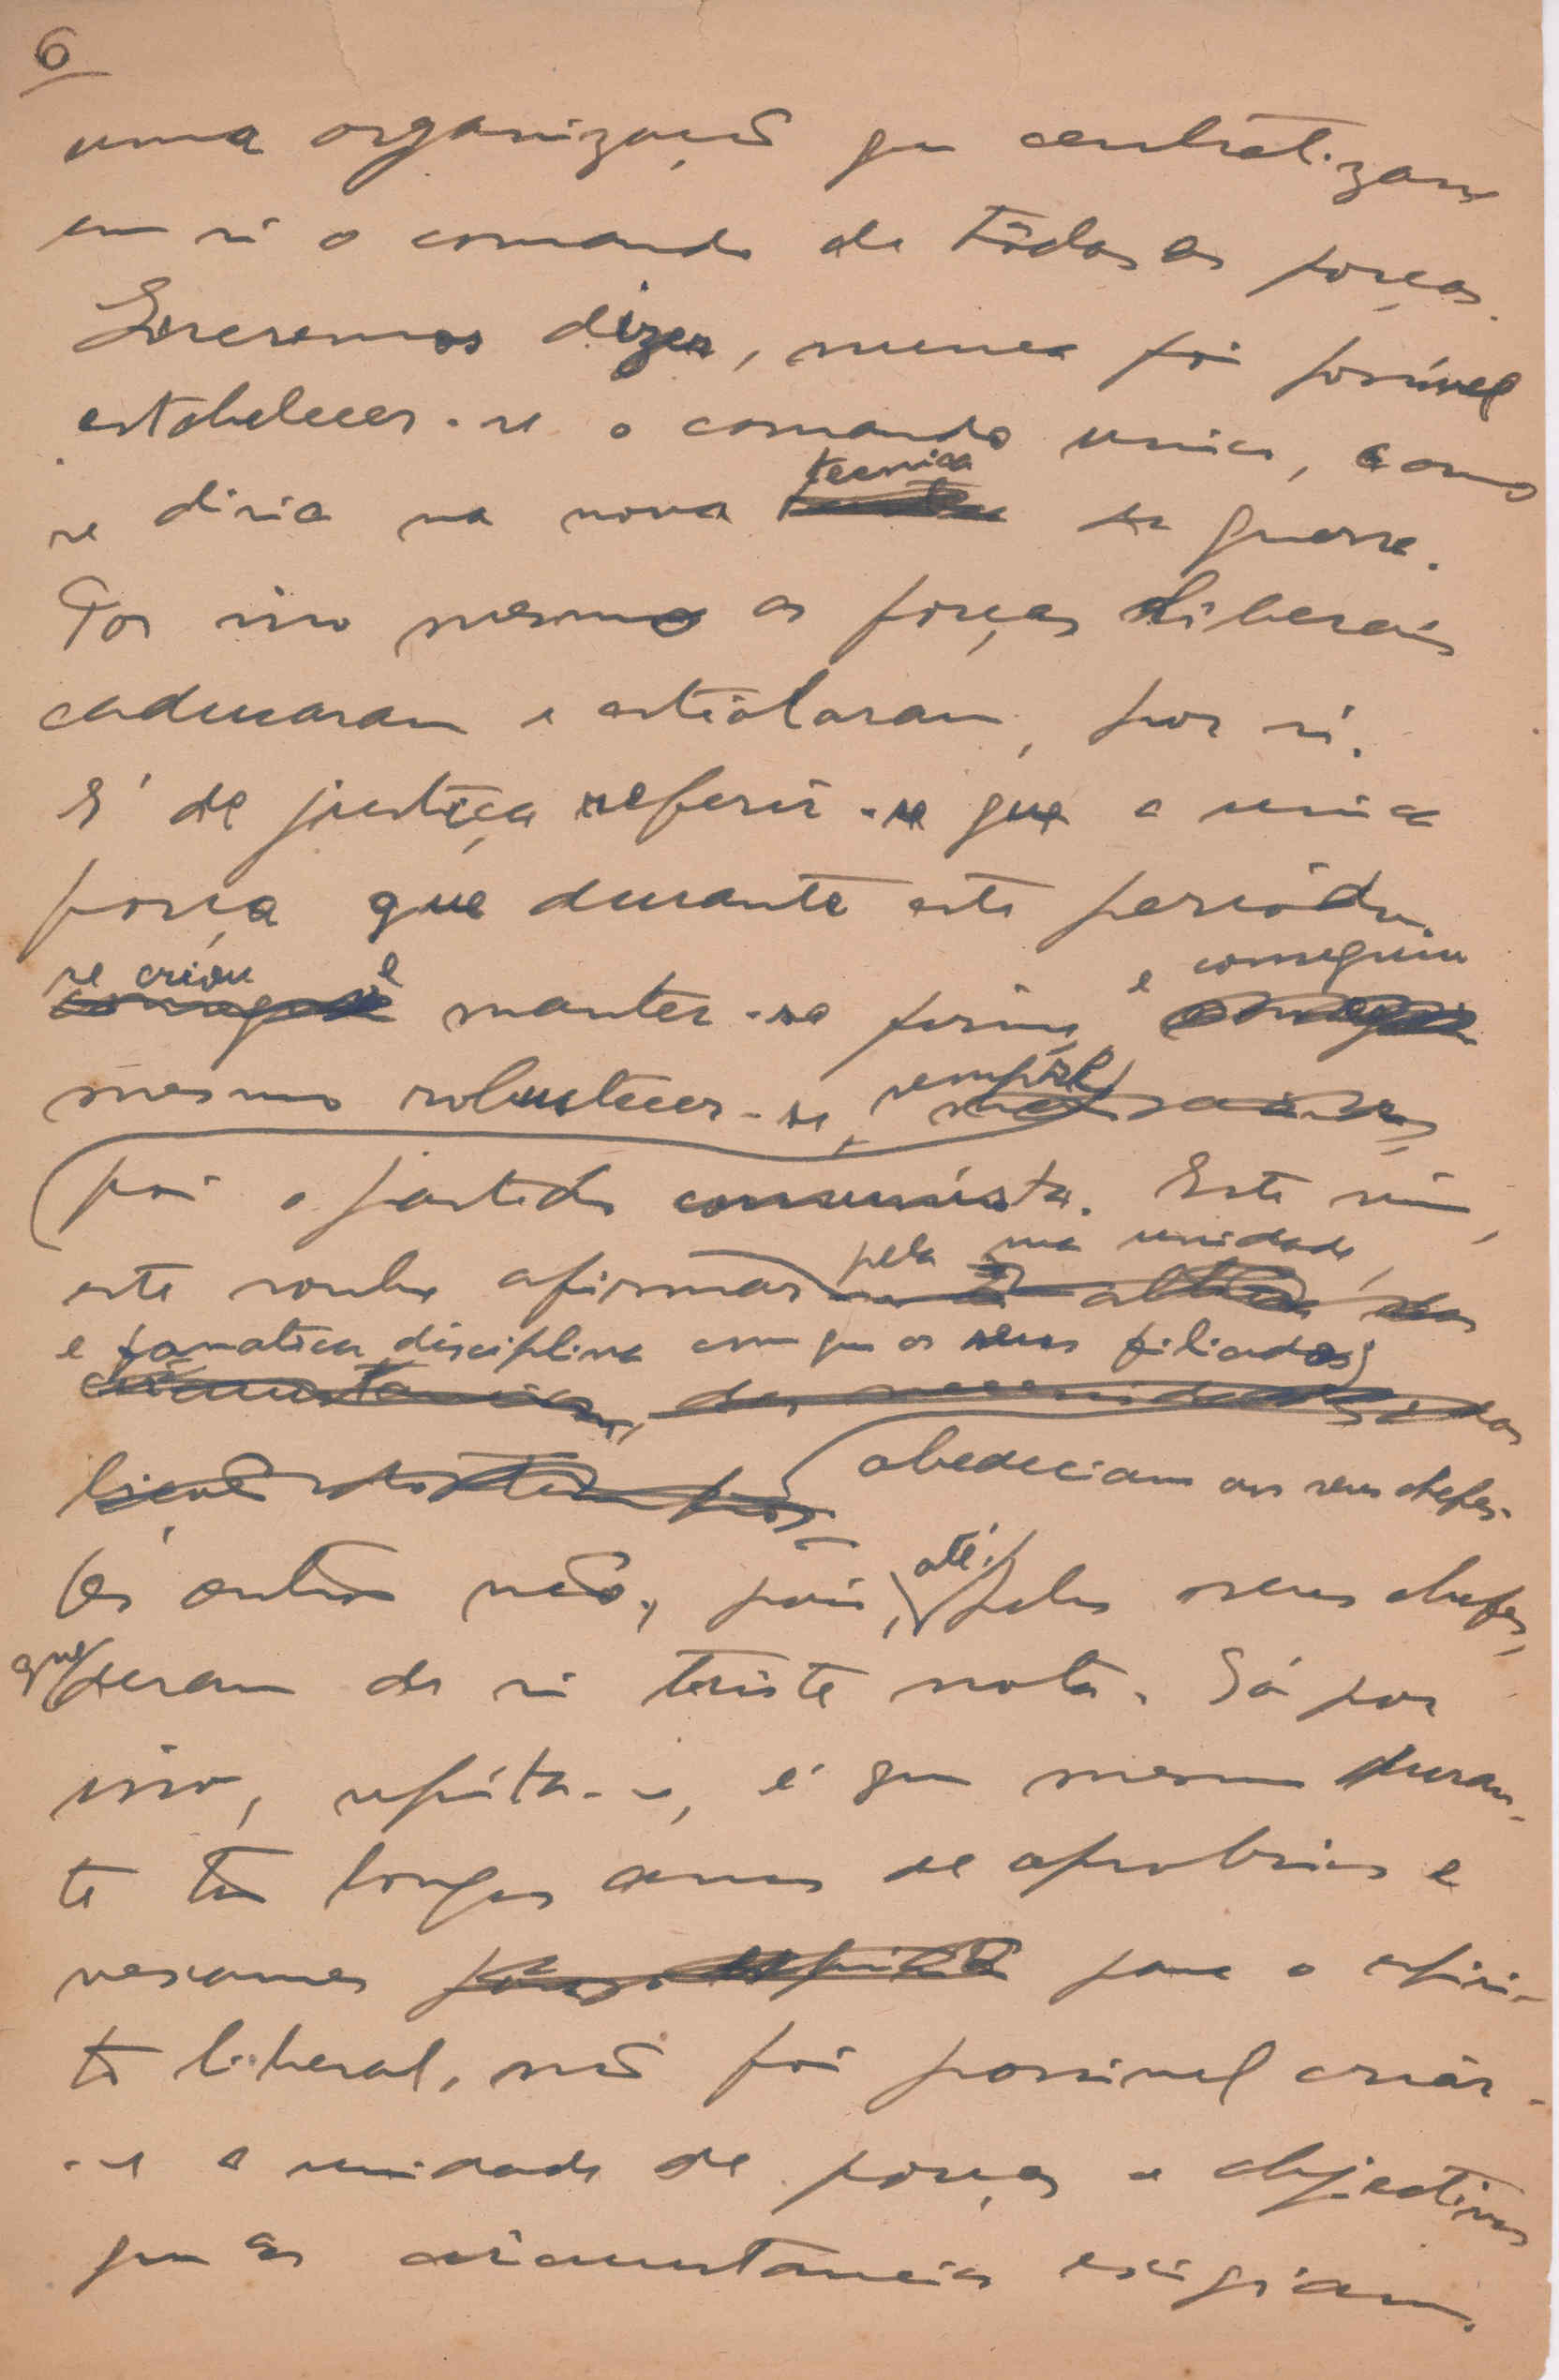 6
uma organização que centralizasse
em si o comando de tôdas as forças.
Queremos dizer, nunca foi possivel
estabelecer-se o comando unico, como
se diria na nova tecnica da guerra.
Por isso mesmo as forças liberais
caducaram e estiolaram, por si.
E' de justiça referir-se que a unica
força que durante este periódo
se criou e manter-se firme e conseguiu
mesmo robustecer-se, sempre,
foi o partido comunista. Este sim,
este soube afirmar pela sua unidade,
e fanatica disciplina com que os seus filiados
obedeciam aos seus chefes.
Os outros não, pois, até pelos seus chefes,
que deram de si triste nota. Só por
isso, repita-se, é que mesmo duran-
te tão longos anos de oprobrios e
vexames para o espiri-
to liberal, não foi possivel criár-
-se a unidade de forças e objectivos
que as circunstancias exigiam.